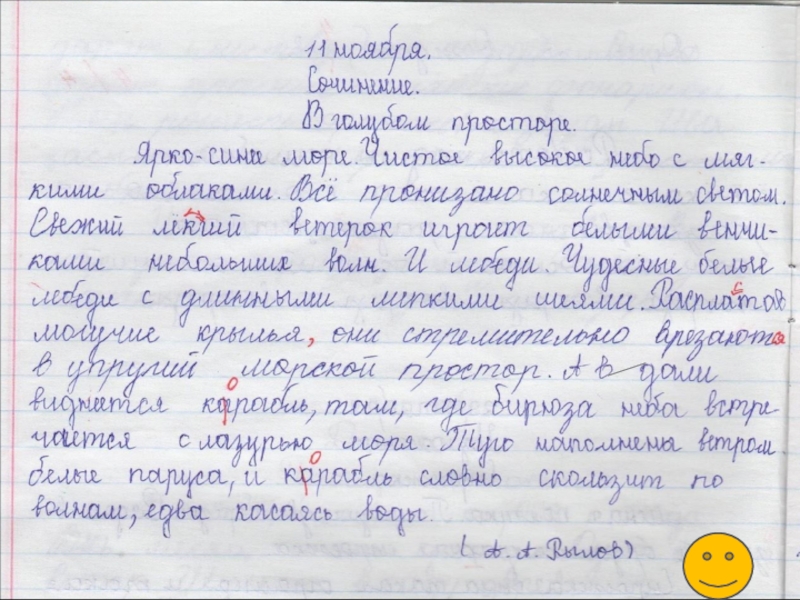 11 ноября.
Сочинение.
В голубом просторе.
Ярко-сине море. Чистое высокое небо с мяг-
кими облаками. Всё пронизано солнечным светом.
Свежий лёгкий ветерок играет белыми венчи-
ками небольших волн. И лебеди Чудесные белые
лебеди с длинными мепкими шеями. Распластов
могучие крылья, они стремительно врезаются
в упругий морской простор. А в дали
виднется корабль, там, где бирюза неба встре-
чается с лазурью моря. Туго наполнены ветром
белые паруса, и корабль словно скользит по
волнам, едва касаясь воды.
(А. А. Рылов)